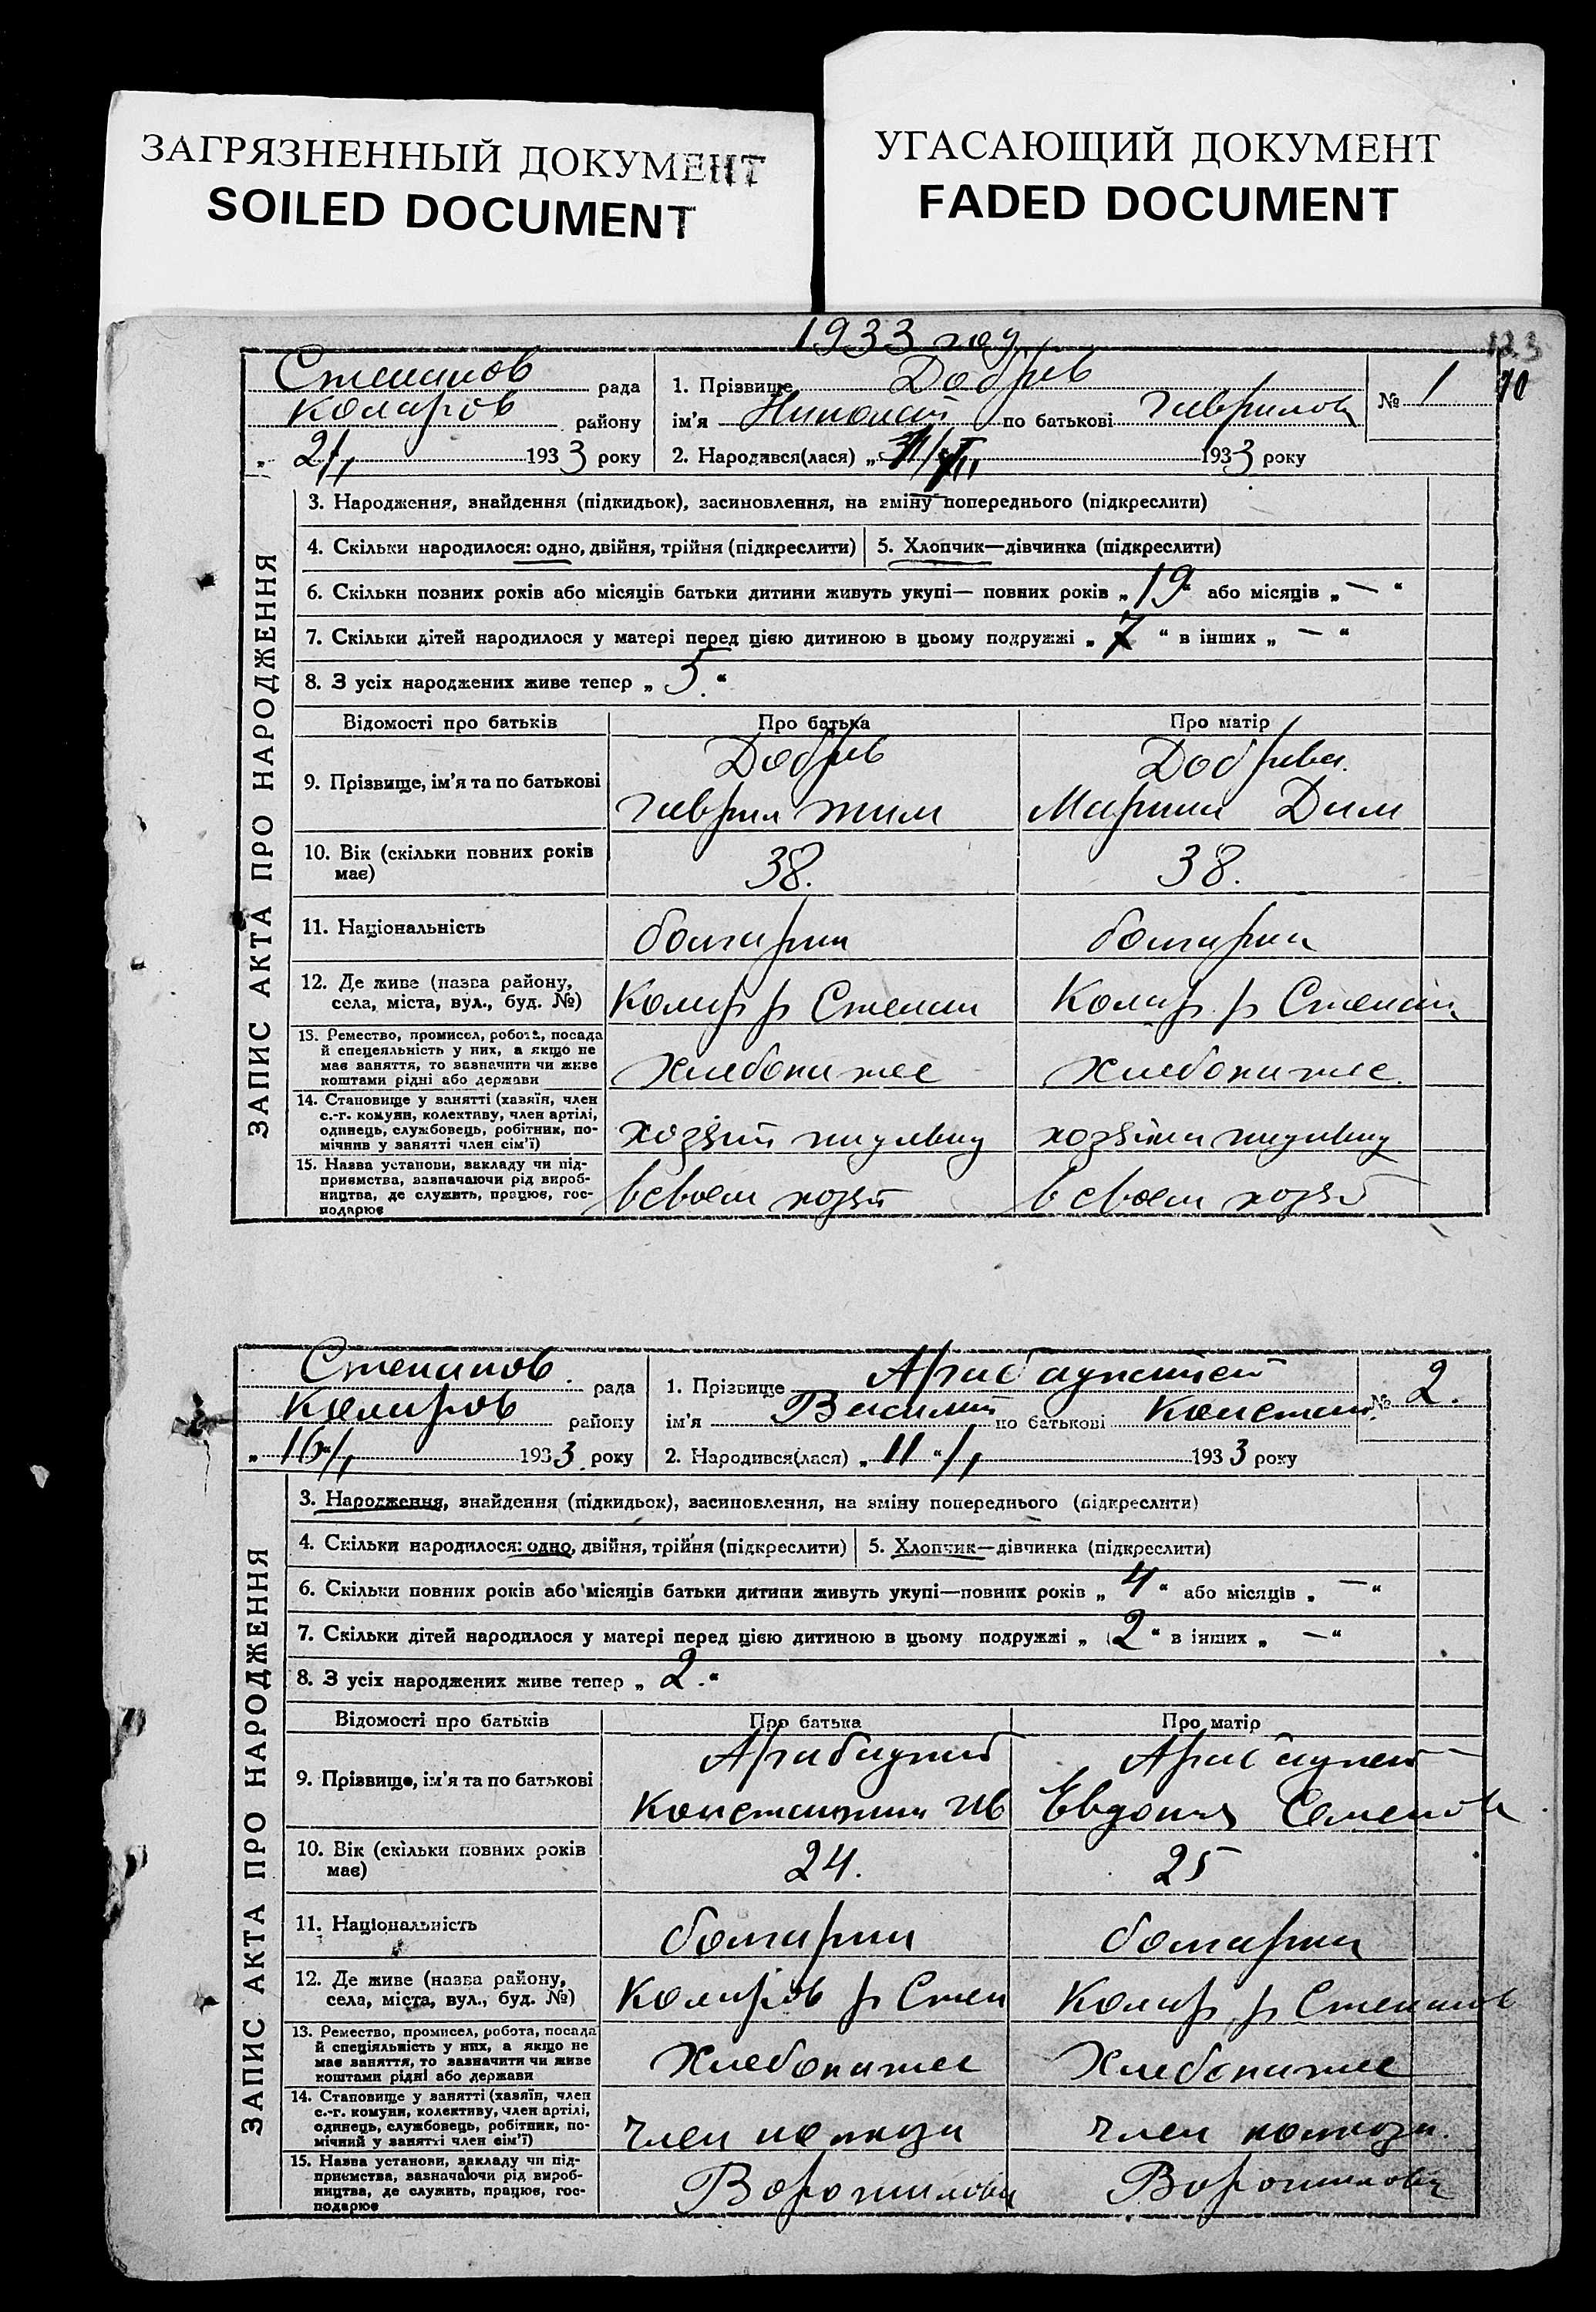 ЗАГРЯЗНЕННЫЙ ДОКУМЕНТ
SOILED DOCUMENT
УГАСАЮЩИЙ ДОКУМЕНТ
FADED DOCUMENT
1933 год
123
10
ЗАПИС АКТА ПРО НАРОДЖЕННЯ
Степанов рада
Коларов району
„ 2/I 1933 року
1. Прізвище Добрев
ім'я Николай по батькові Гаврилов
№ 1
2. Народився(лася) „ 1933 року
3. Народження, знайдення (підкидьок), засиновлення, на зміну попереднього (підкреслити)
4. Скільки народилося: одно, двійня, трійня (підкреслити) 5. Хлопчик—дівчинка (підкреслити)
6. Скільки повних років або місяців батьки дитини живуть укупі— повних років „ 19 “ або місяців „ — “
7. Скільки дітей народилося у матері перед цією дитиною в цьому подружжі „ 7 “ в інших „ — “
8. З усіх народжених живе тепер „ 5. “
Відомості про батьків Про батька Про матір
9. Прізвище, ім'я та по батькові
Добрев
Гаврил
Добрева.
Марина Дим
10. Вік (скільки повних років має) 38. 38.
11. Національність болгарин болгарка
12. Де живе (назва району, села, міста, вул., буд. №) Колар р Степан Колар р Степан
13. Ремество, промисел, робота, посада
й спецеяльність у них, а якщо не
має заняття, то зазначити чи живе
коштами рідні або держави
Хлебопашес Хлебопашес.
14. Становище у занятті (хазяїн, член
с.-г. комуни, колективу, член артілі,
одинець, службовець, робітник, по-
мічник у занятті член сім'ї)
хозяин хозяика
15. Назва установи, закладу чи під-
приємства, зазначаючи рід вироб-
ництва, де служить, працює, гос-
подарює
в своем хозяй в своем хозяй
ЗАПИС АКТА ПРО НАРОДЖЕННЯ
Степанов. рада
Коларов району
„ 16/I 1933 року
1. Прізвище
ім'я Василий по батькові Констан.
№ 2.
2. Народився(лася) „ 11 “ /I 1933 року
3. Народження, знайдення (підкидьок), засиновлення, на зміну попереднього (підкреслити)
4. Скільки народилося: одно, двійня, трійня (підкреслити) 5. Хлопчик—дівчинка (підкреслити)
6. Скільки повних років або місяців батьки дитини живуть укупі—повних років „ 4 “ або місяців „ — “
7. Скільки дітей народилося у матері перед цією дитиною в цьому подружжі „ 2 “ в інших „ — “
8. З усіх народжених живе тепер „ 2. “
Відомості про батьків Про батька Про матір
9. Прізвище, ім'я та по батькові
Константин Ив
Евдокия Семенов
10. Вік (скільки повних років має) 24. 25
11. Національність болгарин болгарка
12. Де живе (назва району, села, міста, вул., буд. №) Коларов р Степ Колар р Степанов
13. Ремество, промисел, робота, посада
й спеціяльність у них, а якщо не
має заняття, то зазначити чи живе
коштами рідні або держави
Хлебопашес Хлебопашес
14. Становище у занятті (хазяїн, член
с.-г. комуни, колективу, член артілі,
одинець, службовець, робітник, по-
мічний у занятті член сім'ї)
член колхоза член колхоза.
15. Назва установи, закладу чи під-
приємства, зазначаючи рід вироб-
ництва, де служить, працює, гос-
подарює
Ворошилова Ворошилова